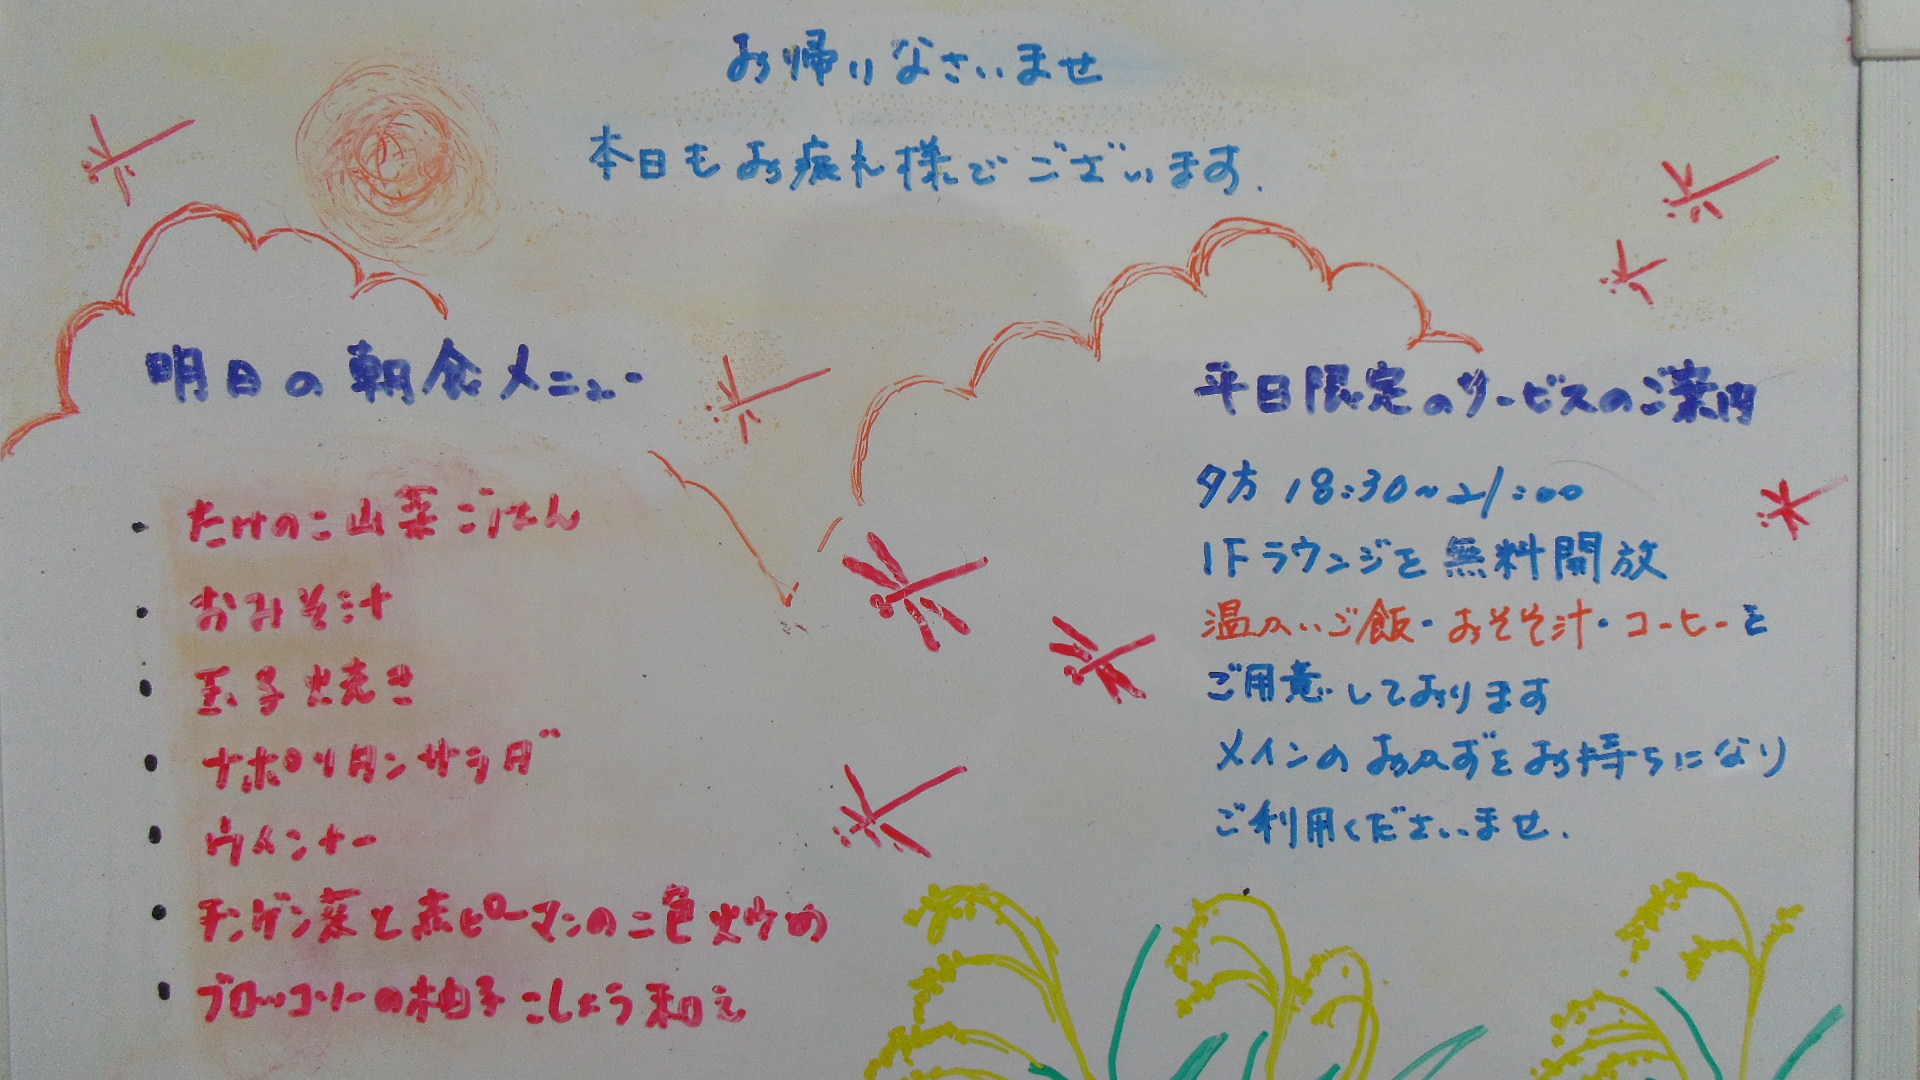 お帰りなさいませ
本日もお疲れ様でございます.
明日の朝食メニュー
・たけのこ山菜ごはん
・おみそ汁
・玉子焼き
・ナポリタンサラダ
・ウインナー
・チンゲン菜と赤ピーマンの二色炒め
・ブロッコリーの柚子こしょう和え
平日限定のサービスのご案内
夕方 18:30~21:00
1Fラウンジを無料開放
温かいご飯・おみそ汁・コーヒーを
ご用意しております
メインのおかずをお持ちになり
ご利用くださいませ.